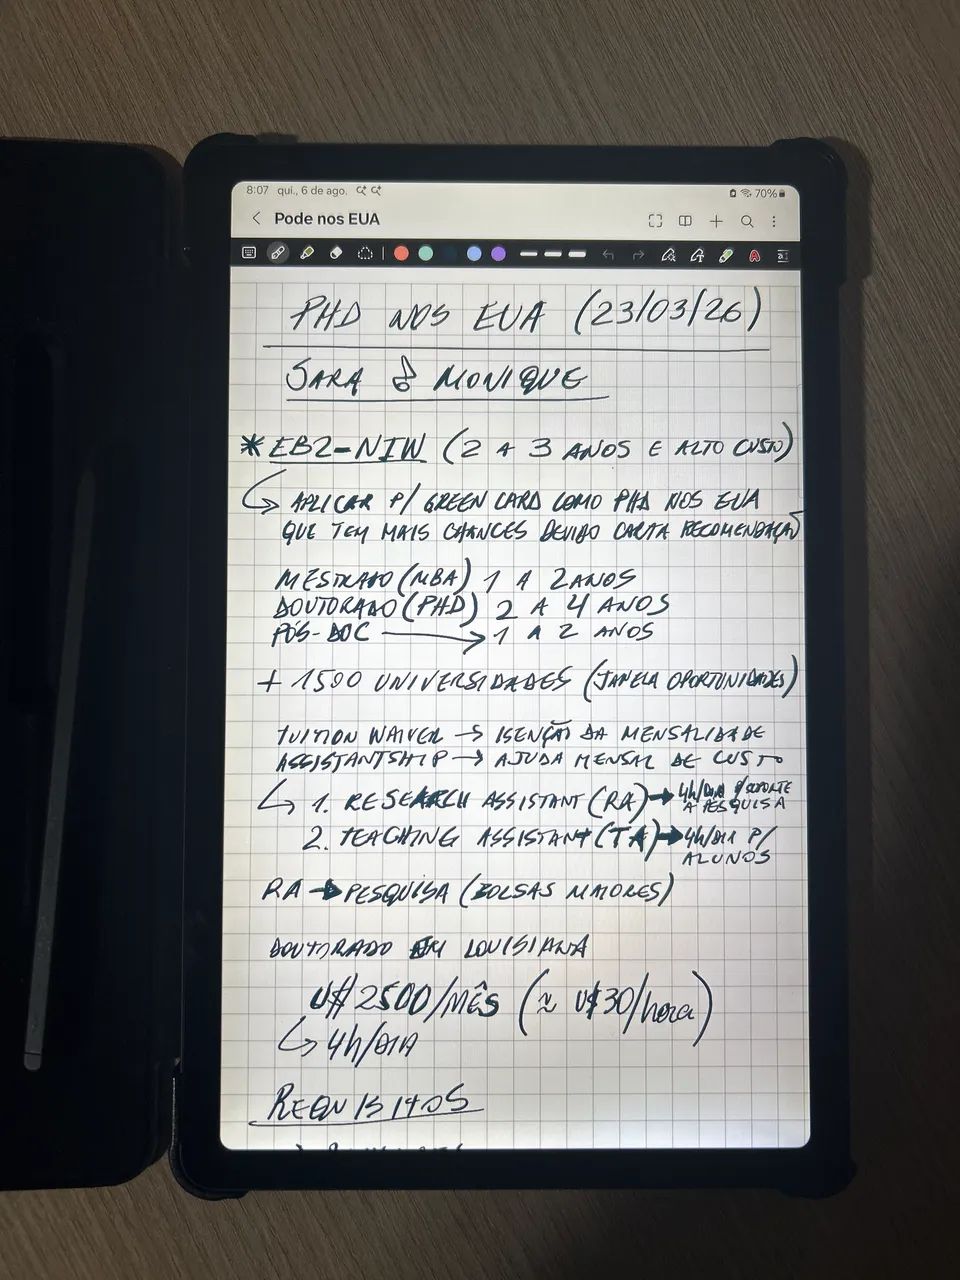 8:07 qui., 6 de ago. 70%
Pode nos EUA
PHD NOS EUA (23/03/26)
SARA & MONIQUE
* EB2-NIW (2 A 3 ANOS E ALTO CUSTO)
↳ APLICAR P/ GREEN CARD COMO PHD NOS EUA
QUE TEM MAIS CHANCES DEVIDO CARTA RECOMENDAÇÃO
MESTRADO (MBA) 1 A 2 ANOS
DOUTORADO (PHD) 2 A 4 ANOS
PÓS-DOC → 1 A 2 ANOS
+ 1500 UNIVERSIDADES (JANELA OPORTUNIDADES)
TUITION WAIVER → ISENÇÃO DA MENSALIDADE
ASSISTANTSHIP → AJUDA MENSAL DE CUSTO
↳ 1. RESEARCH ASSISTANT (RA) → 4h/DIA P/ SUPORTE
A PESQUISA
2. TEACHING ASSISTANT (TA) → 4h/DIA P/
ALUNOS
RA → PESQUISA (BOLSAS MAIORES)
DOUTORADO EM LOUISIANA
U$ 2500/MÊS (≈ U$30/hora)
↳ 4h/DIA
REQUISITOS